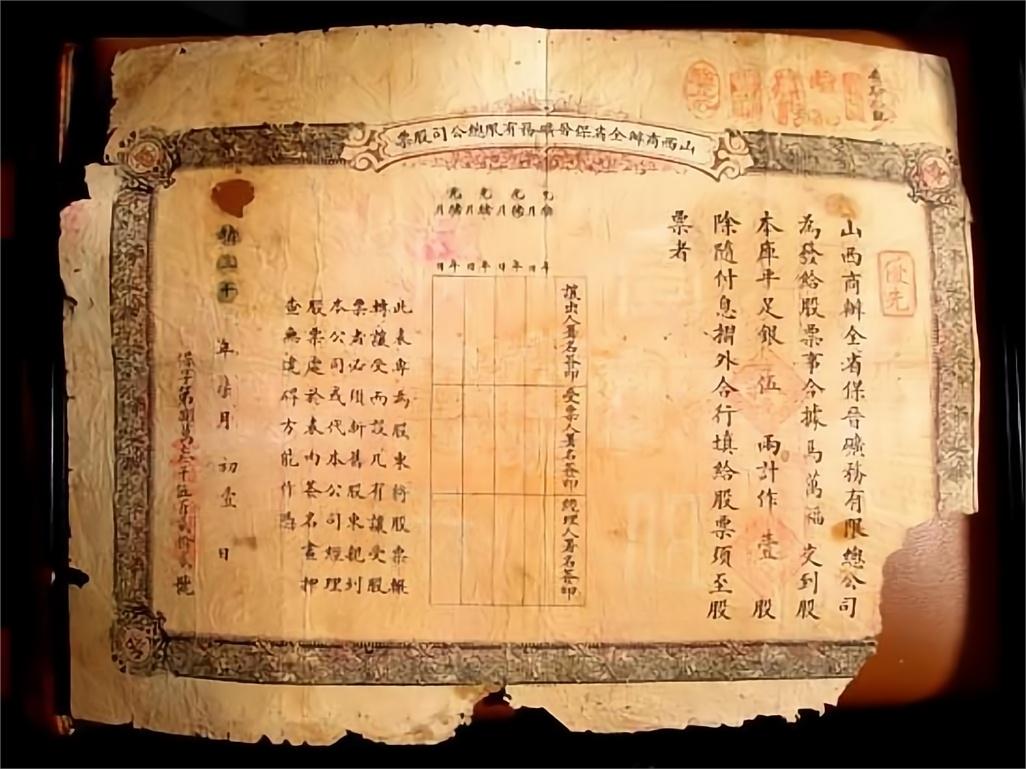 山西商辦全省保晉礦務有限總公司股票
優先
山西商辦全省保晉礦務有限總公司
為發給股票事今據馬萬福 交到股
本庫平足銀 伍 兩計作 壹 股
除隨付息摺外合行填給股票須至股
票者
讓出人署名簽印 受票人署名簽印 總理人署名簽印
光緒 年 月 日
光緒 年 月 日
光緒 年 月 日
光緒 年 月 日
此表專為股東將股票輾
轉讓受而設凡有讓受股
票者必須新舊股東親到
本公司或代本公司經理
股票處於表內簽名畫押
查無違碍方能作憑
年 月 初壹 日
保字第 號